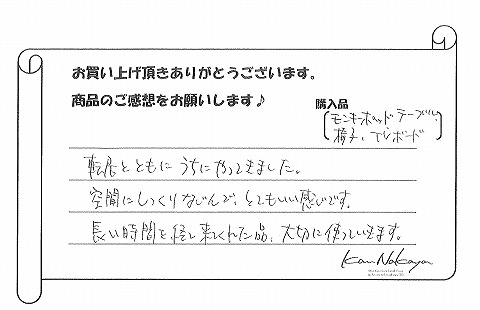 お買い上げ頂きありがとうございます。
商品のご感想をお願いします♪
購入品
モンキーポッドテーブル、
椅子、TVボード
転居とともにうちにやってきました。
空間にしっくりなじんで、とてもいい感じです。
長い時間を経て来てくれた品、大切に使っていきます。